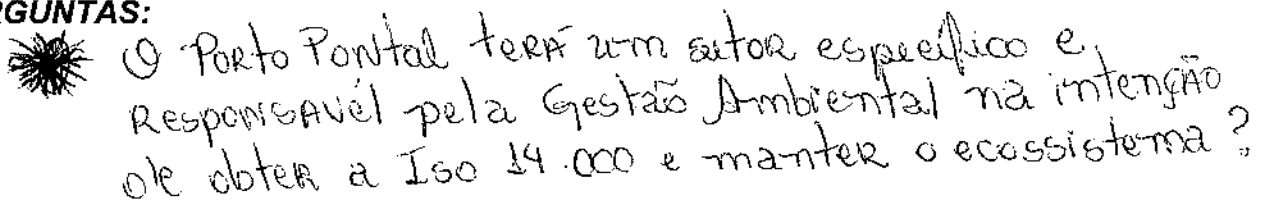 RGUNTAS:
O Porto Pontal terá um setor específico e
Responsavél pela Gestão Ambiental na intenção
de obter a Iso 14.000 e manter o ecossistema?